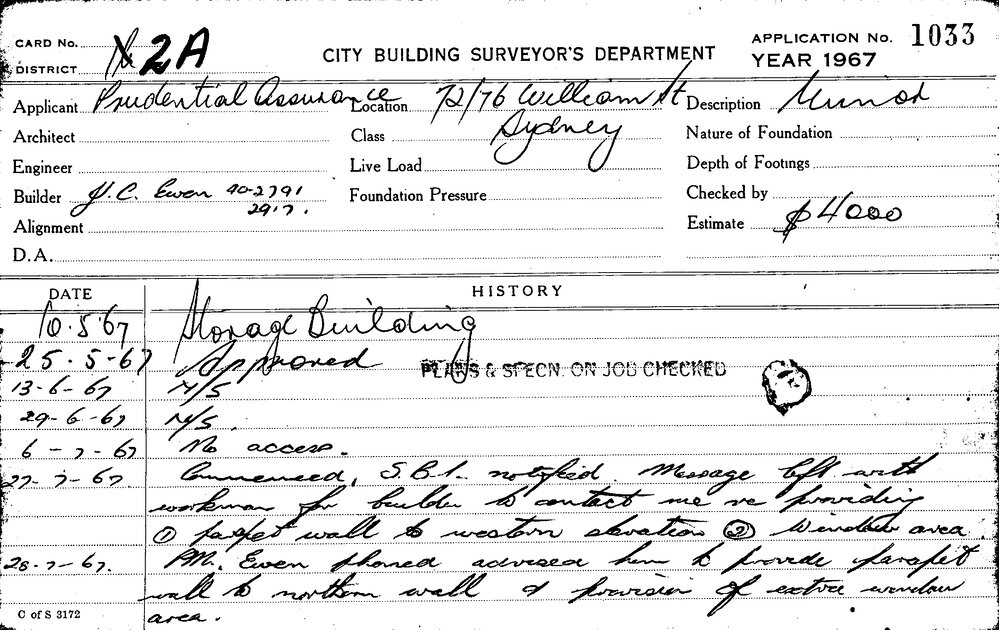 CARD No. 2A
DISTRICT
CITY BUILDING SURVEYOR'S DEPARTMENT
APPLICATION No. 1033
YEAR 1967
Applicant Prudential Assurance Location 72/76 William St Description Minor
Sydney
Architect Class Nature of Foundation
Engineer Live Load Depth of Footings
Builder J.C. Ewen 90-2791 Foundation Pressure Checked by
29.7.
Alignment Estimate $4000
D.A.
DATE HISTORY
10.5.67 Storage Building
25.5-67 Approved PLANS & SPECN. ON JOB CHECKED
13-6-67 N/S
29-6-67 N/S.
6-7-67 No access.
27-7-67. Commenced, S.B.I. notified Message left with
workman for builder to contact me re providing
① parapet wall to western elevation ② Window area.
28-7-67. Mr. Ewen phoned advised him to provide parapet
wall to northern wall & provision of extra window
area.
C of S 3172